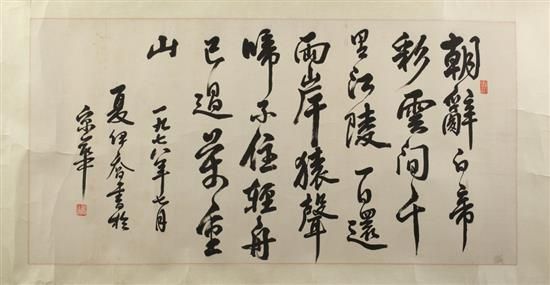 朝辭白帝
彩雲間千
里江陵一日還
兩岸猿聲
啼不住輕舟
已過萬重
山
一九七八年七月
夏伊喬書於
京華